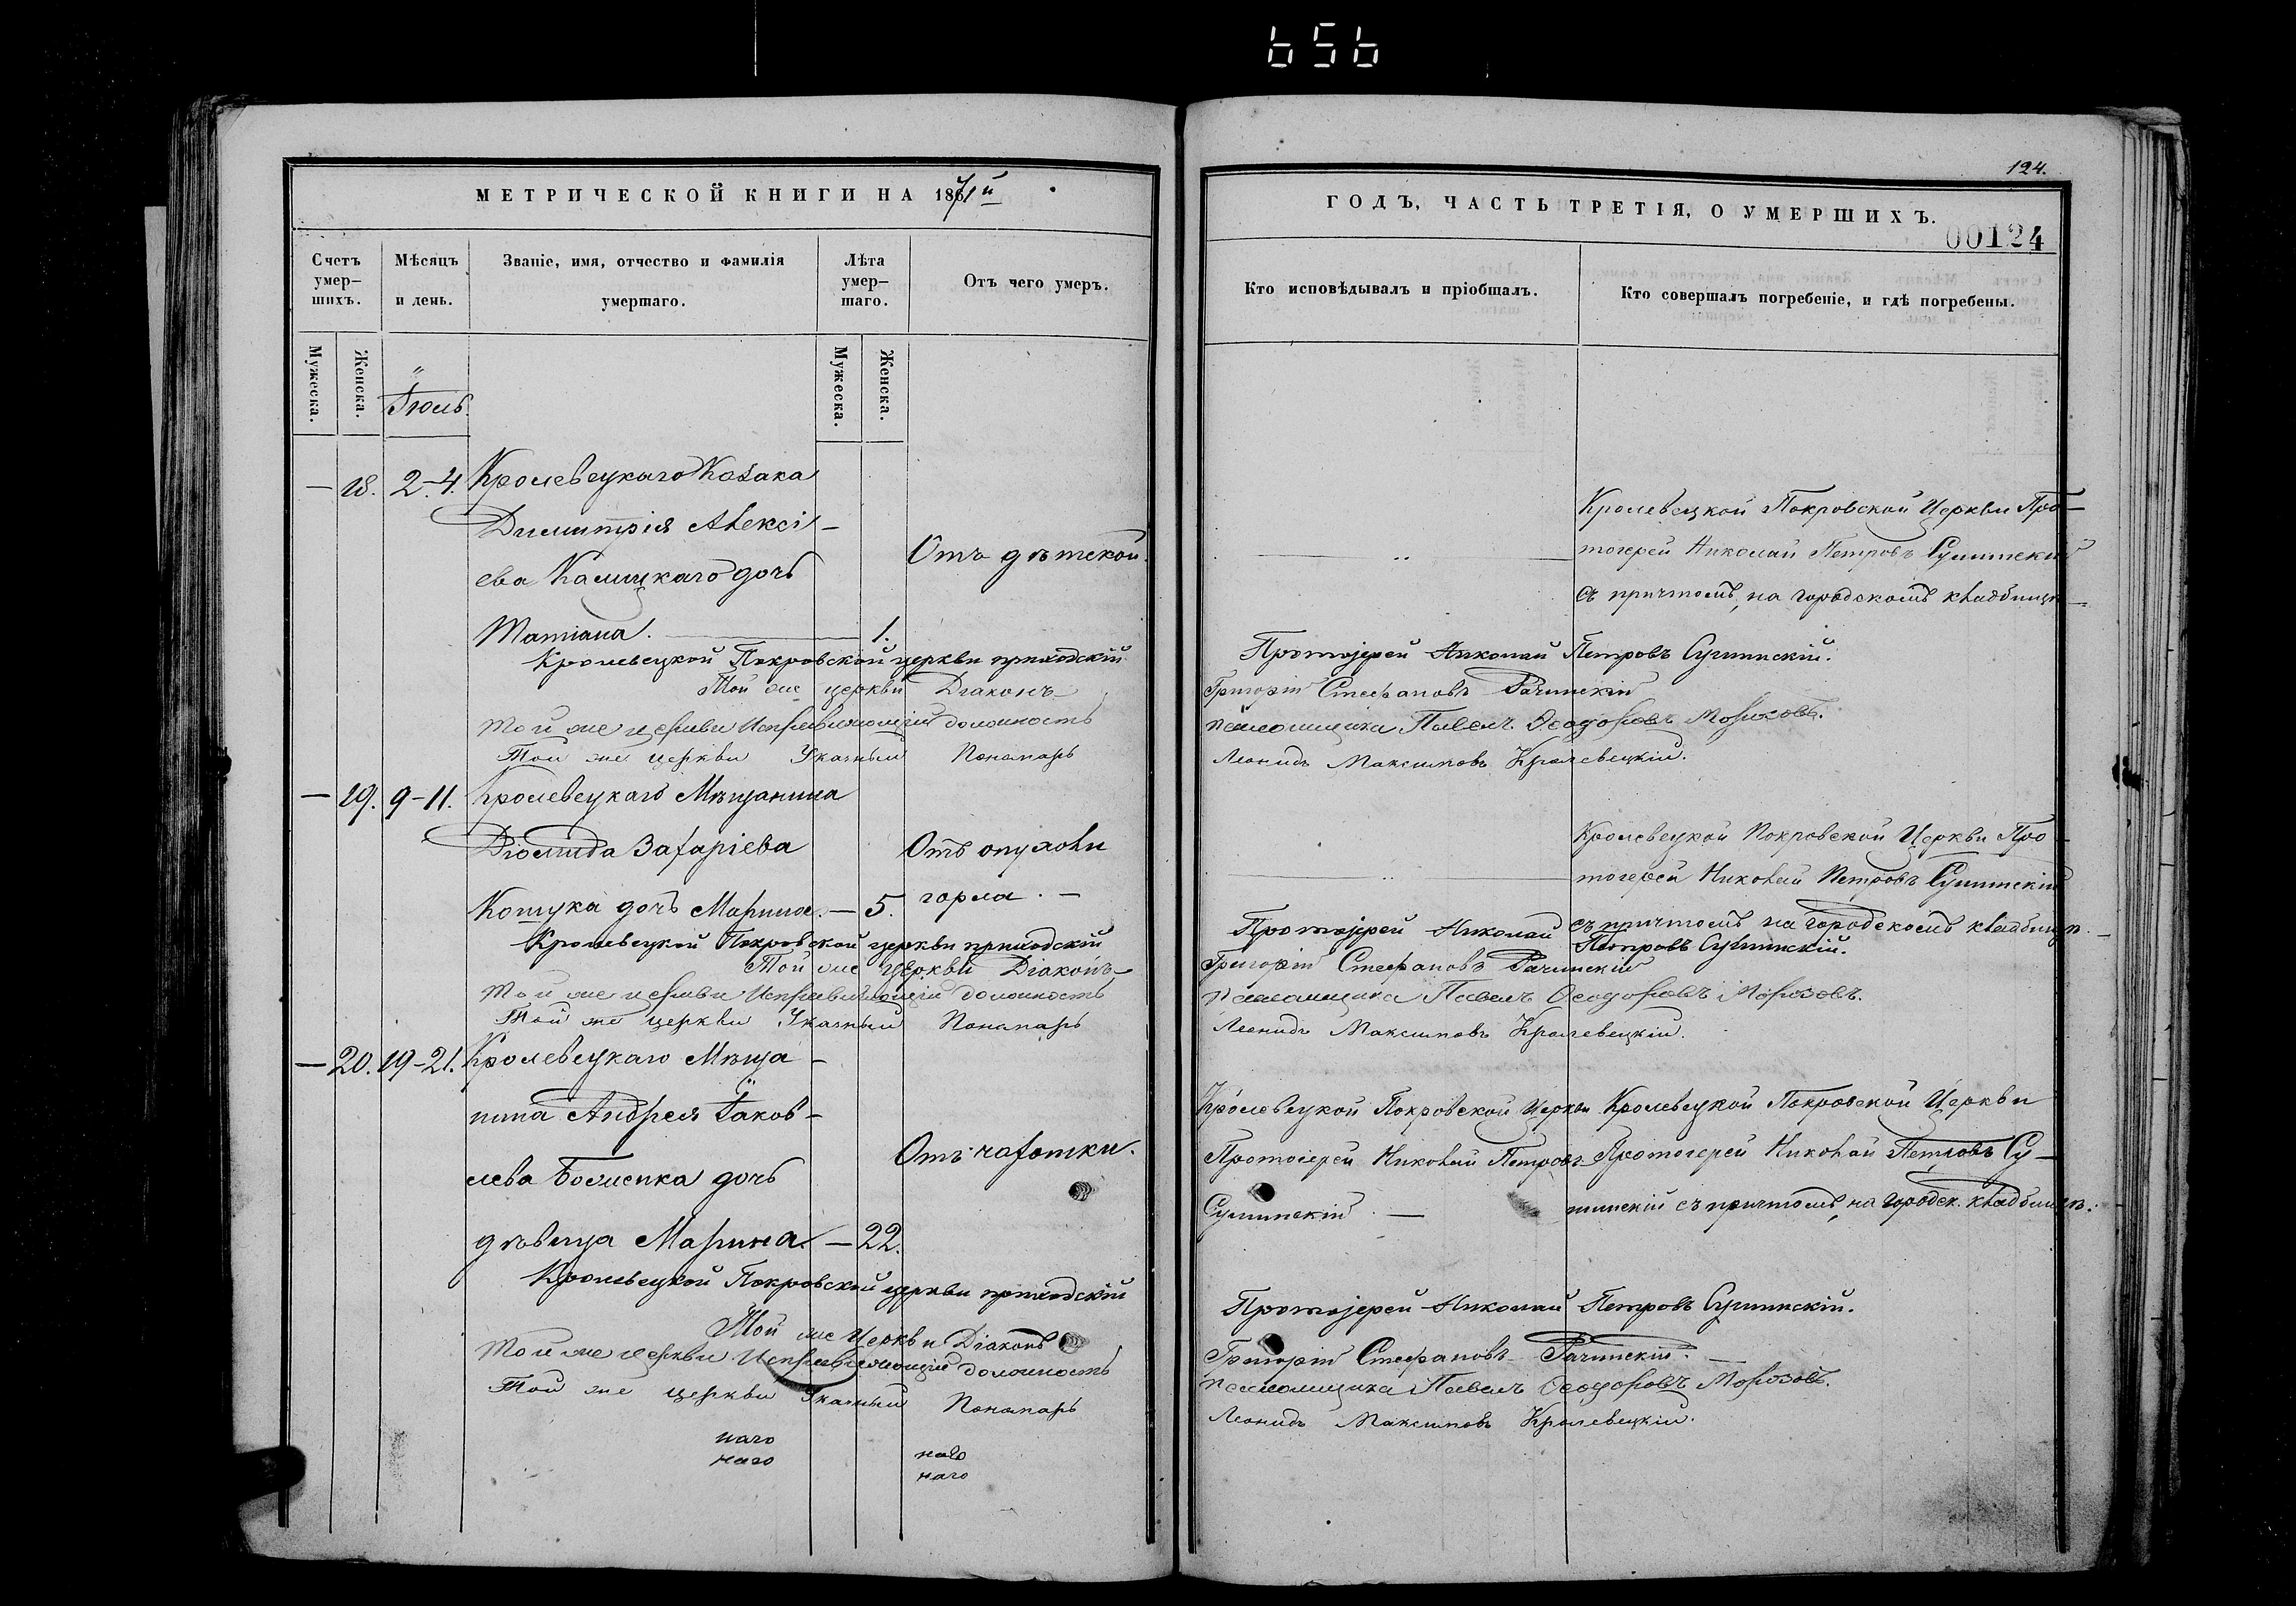 656
МЕТРИЧЕСКОЙ КНИГИ НА 1871й
Счетъ умер-шихъ.
Мѣсяцъ и день.
Званіе, имя, отчество и фамилія умершаго.
Лѣта умер-шаго.
Отъ чего умеръ.
Мужеска.
Женска.
Іюль.
Мужеска.
Женска.
— 18. 2-4. Кролевецкаго Козака
Димитрія Алексі-
ева Камицкаго дочь
Отъ дѣтской.
Татіана. — 1.
Кролевецкой Покровской церкви приходскій
Той же церкви Діаконъ
Той же церкви Исправляющій должность
Той же церкви Указный Пономарь
— 19. 9-11. Кролевецкаго Мѣщанина
Діомида Захаріева
Отъ опухоли
Кошука дочь Марина. — 5. горла. —
Кролевецкой Покровской церкви приходскій
Той же церкви Діаконъ
Той же церкви Исправляющій должность
Той же церкви Указный Пономарь
— 20. 19-21. Кролевецкаго Мѣща-
нина Андрея Іаков-
лева дочь
Отъ чахотки.
дѣвица Марина. — 22.
Кролевецкой Покровской церкви приходскій
Той же Церкви Діаконъ
Той же церкви Исправляющій должность
Той же церкви Указный Пономарь
наго наго
наго наго
124.
ГОДЪ, ЧАСТЬ ТРЕТІЯ, О УМЕРШИХЪ.
00124
Кто исповѣдывалъ и пріобщалъ.
Кто совершалъ погребеніе, и гдѣ погребены.
Кролевецкой Покровской Церкви Про-
тоіерей Николай Петровъ Сушинскій
съ причтомъ, на городскомъ кладбищѣ
Протоіерей Николай Петровъ Сушинскій.
Григорій Стефановъ Рачинскій
псаломщика Павелъ Ѳеодоровъ Морозовъ.
Леонидъ Максимовъ Кролевецкій.
Кролевецкой Покровской Церкви Про-
тоіерей Николай Петровъ Сушинскій
съ причтомъ на городскомъ кладбищѣ.
Протоіерей Николай Петровъ Сушинскій.
Григорій Стефановъ Рачинскій
псаломщика Павелъ Ѳеодоровъ Морозовъ.
Леонидъ Максимовъ Кролевецкій.
Кролевецкой Покровской Церкви
Протоіерей Николай Петровъ
Сушинскій. —
Кролевецкой Покровской Церкви
Протоіерей Николай Петровъ Су-
шинскій съ причтомъ, на городск. кладбищѣ.
Протоіерей Николай Петровъ Сушинскій.
Григорій Стефановъ Рачинскій.
псаломщика Павелъ Ѳеодоровъ Морозовъ.
Леонидъ Максимовъ Кролевецкій.